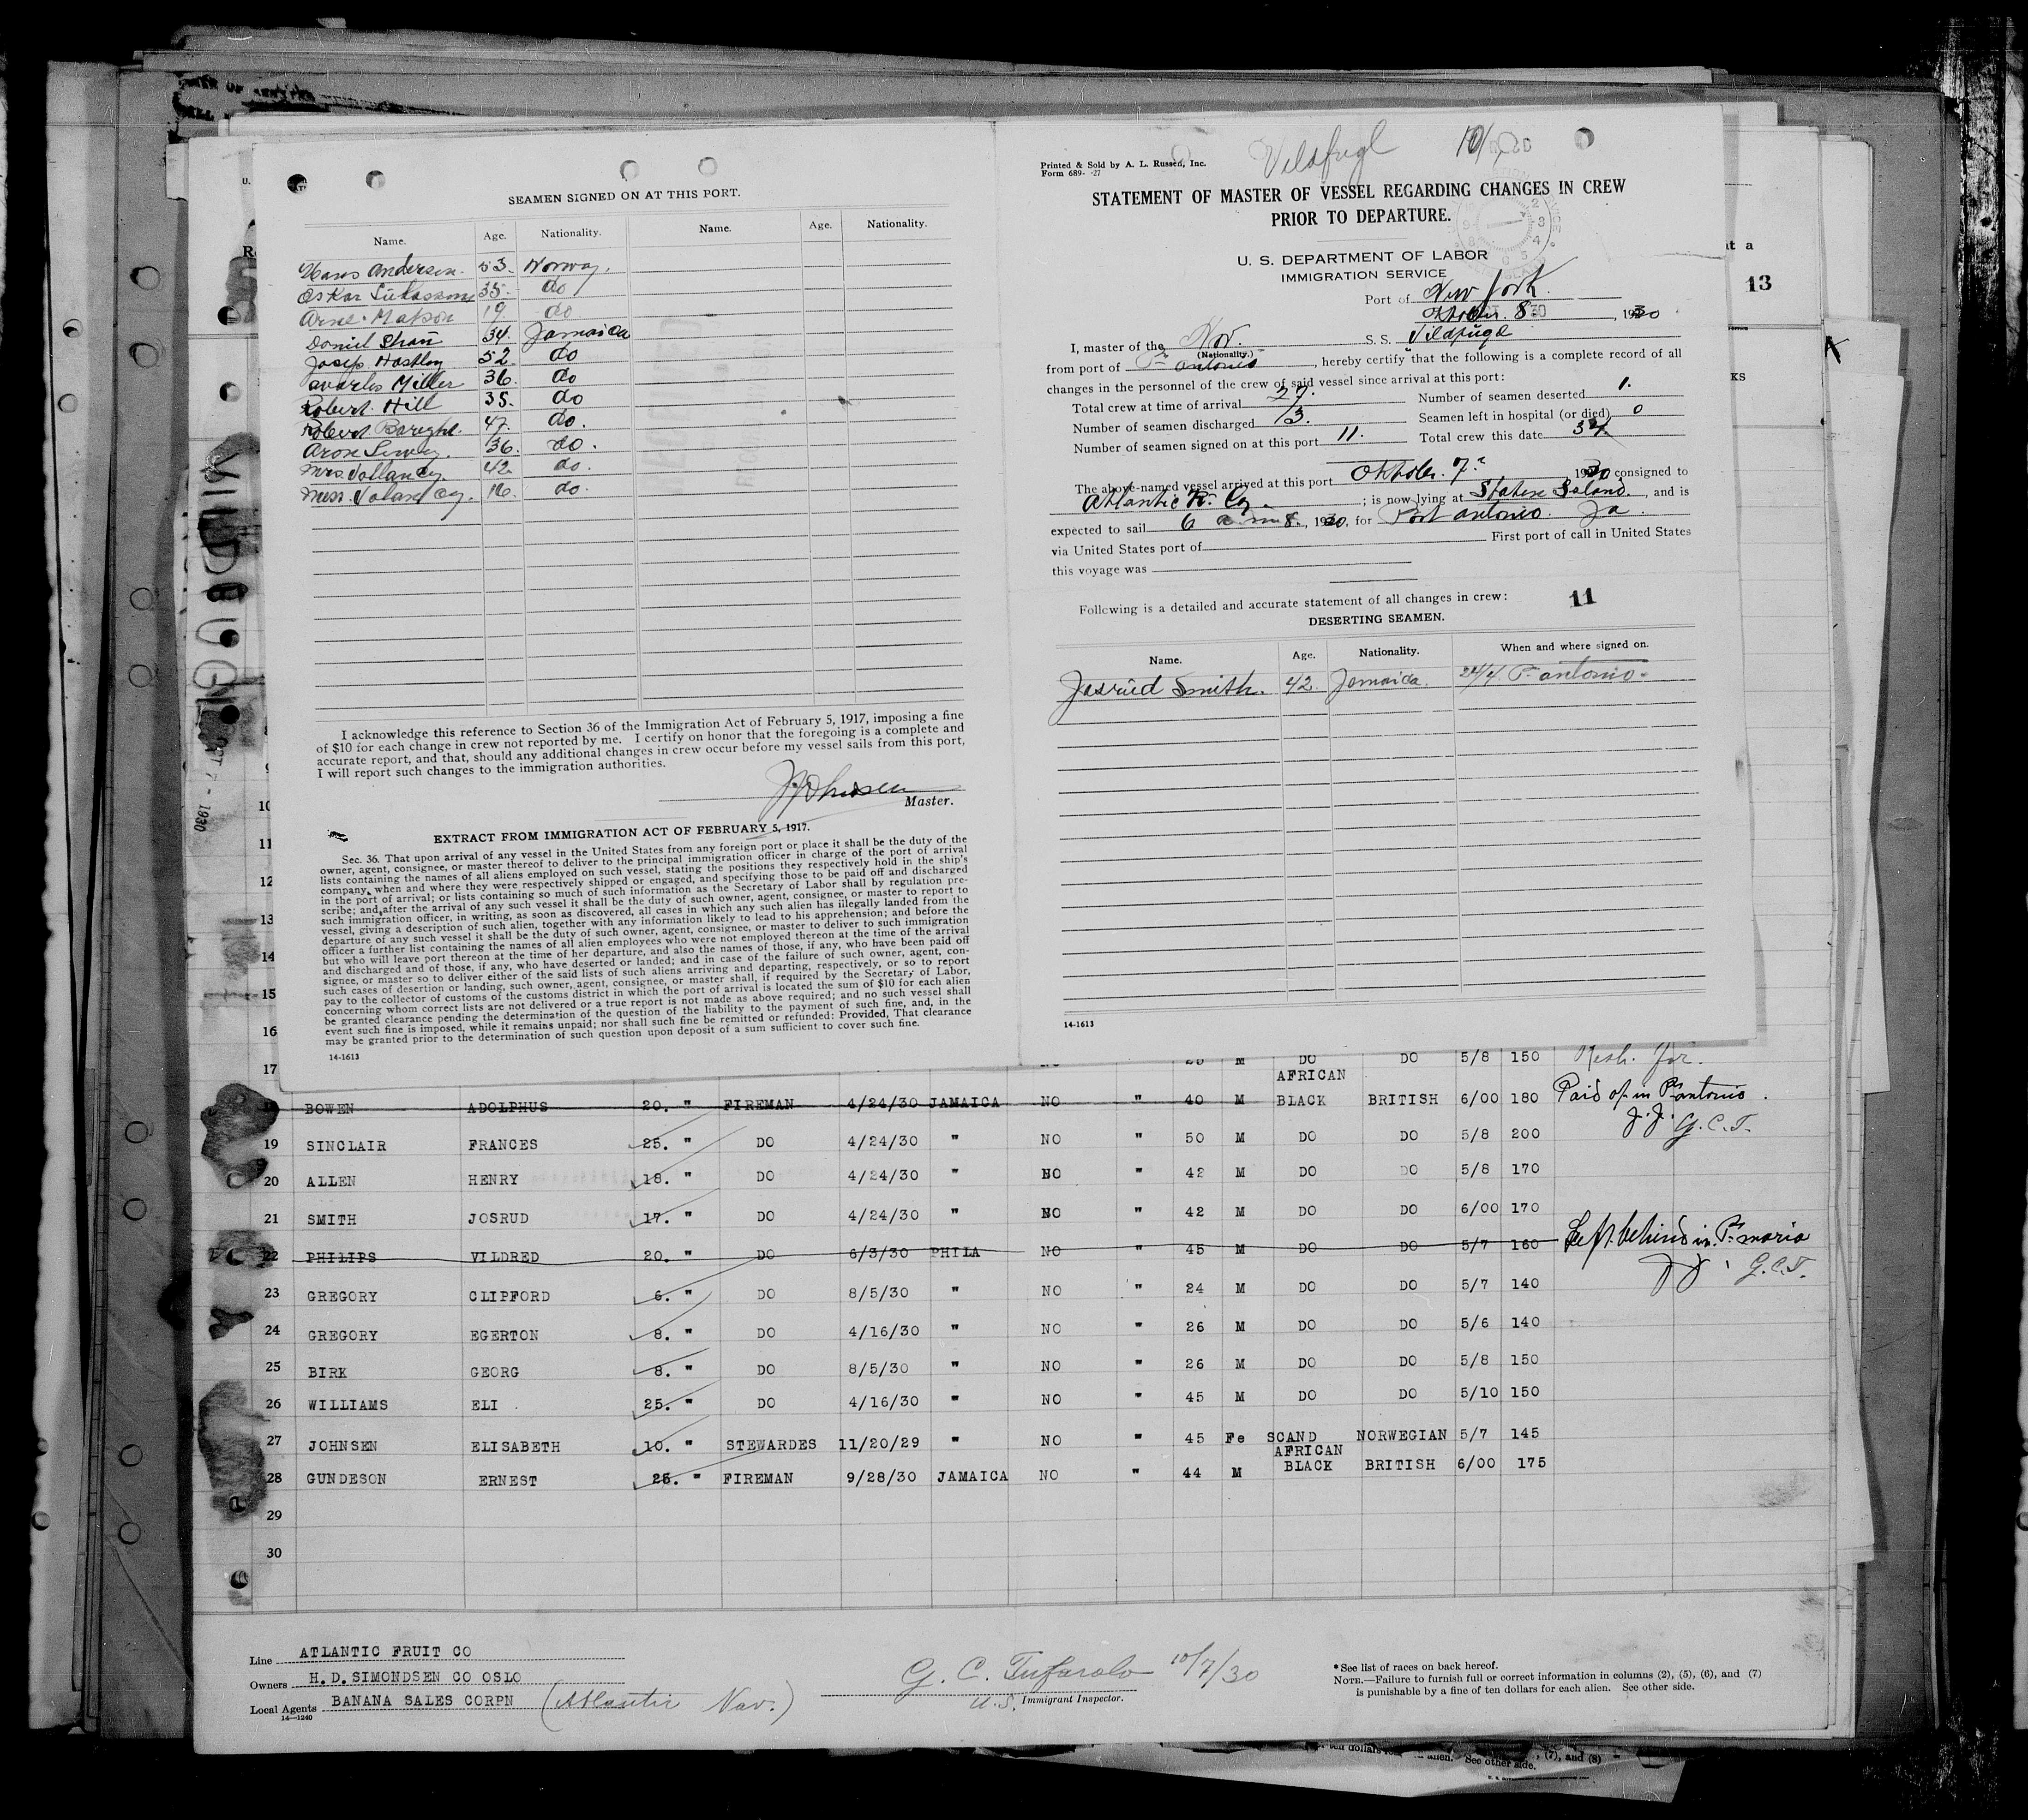 SEAMEN SIGNED ON AT THIS PORT.
Name. Age. Nationality. Name. Age. Nationality.
Hans Andersen. 53. Norway.
Oskar 35. do
Arne 19. do
Daniel Shau 34. Jamaica
52. do
Charles Miller 36. do
Robert Hill 35. do
Robert 47. do.
36. do.
Mrs. 42. do.
Miss. 16. do.
I acknowledge this reference to Section 36 of the Immigration Act of February 5, 1917, imposing a fine
of $10 for each change in crew not reported by me. I certify on honor that the foregoing is a complete and
accurate report, and that, should any additional changes in crew occur before my vessel sails from this port,
I will report such changes to the immigration authorities.
J Johnsen
Master.
EXTRACT FROM IMMIGRATION ACT OF FEBRUARY 5, 1917.
Sec. 36. That upon arrival of any vessel in the United States from any foreign port or place it shall be the duty of the
owner, agent, consignee, or master thereof to deliver to the principal immigration officer in charge of the port of arrival
lists containing the names of all aliens employed on such vessel, stating the positions they respectively hold in the ship's
company, when and where they were respectively shipped or engaged, and specifying those to be paid off and discharged
in the port of arrival; or lists containing so much of such information as the Secretary of Labor shall by regulation pre-
scribe; and after the arrival of any such vessel it shall be the duty of such owner, agent, consignee, or master to report to
such immigration officer, in writing, as soon as discovered, all cases in which any such alien has illegally landed from the
vessel, giving a description of such alien, together with any information likely to lead to his apprehension; and before the
departure of any such vessel it shall be the duty of such owner, agent, consignee, or master to deliver to such immigration
officer a further list containing the names of all alien employees who were not employed thereon at the time of the arrival
but who will leave port thereon at the time of her departure, and also the names of those, if any, who have been paid off
and discharged and of those, if any, who have deserted or landed; and in case of the failure of such owner, agent, con-
signee, or master so to deliver either of the said lists of such aliens arriving and departing, respectively, or so to report
such cases of desertion or landing, such owner, agent, consignee, or master shall, if required by the Secretary of Labor,
pay to the collector of customs of the customs district in which the port of arrival is located the sum of $10 for each alien
concerning whom correct lists are not delivered or a true report is not made as above required; and no such vessel shall
be granted clearance pending the determination of the question of the liability to the payment of such fine, and, in the
event such fine is imposed, while it remains unpaid; nor shall such fine be remitted or refunded: Provided, That clearance
may be granted prior to the determination of such question upon deposit of a sum sufficient to cover such fine.
14-1613
Vildfugl 10/7
Printed & Sold by A. L. Russen, Inc.
Form 689- -27
STATEMENT OF MASTER OF VESSEL REGARDING CHANGES IN CREW
PRIOR TO DEPARTURE.
U. S. DEPARTMENT OF LABOR
IMMIGRATION SERVICE
Port of New York.
8. , 1930
I, master of the Nor. S. S. Vildfugl
(Nationality.)
from port of Pt Antonio , hereby certify that the following is a complete record of all
changes in the personnel of the crew of said vessel since arrival at this port:
Total crew at time of arrival 27. Number of seamen deserted 1.
Number of seamen discharged 3. Seamen left in hospital (or died) 0
Number of seamen signed on at this port 11. Total crew this date 34.
The above-named vessel arrived at this port Oktober. 7. 1930 consigned to
Atlantic Fr. Co. ; is now lying at Staten Island. , and is
expected to sail 6 a m 8. , 1930, for Port Antonio. Ja.
via United States port of First port of call in United States
this voyage was
Following is a detailed and accurate statement of all changes in crew: 11
DESERTING SEAMEN.
Name. Age. Nationality. When and where signed on.
Josrud Smith. 42. Jamaica. 24/4 Pt Antonio.
14-1613
13
VILDFUGL
OCT 7 - 1930
10
11
12
13
14
15
16
17 M DO DO 5/8 150
18 BOWEN ADOLPHUS 20. " FIREMAN 4/24/30 JAMAICA NO " 40 M AFRICAN BLACK BRITISH 6/00 180 Paid of in Pt Antonio.
J.J. G.C.T.
19 SINCLAIR FRANCES 25. " DO 4/24/30 " NO " 50 M DO DO 5/8 200
20 ALLEN HENRY 18. " DO 4/24/30 " NO " 42 M DO DO 5/8 170
21 SMITH JOSRUD 17. " DO 4/24/30 " NO " 42 M DO DO 6/00 170
22 PHILIPS VILDRED 20. " DO 6/3/30 PHILA NO " 45 M DO DO 5/7 160 Left behind in Pt maria
J J. G.C.T.
23 GREGORY CLIPFORD 6. " DO 8/5/30 " NO " 24 M DO DO 5/7 140
24 GREGORY EGERTON 8. " DO 4/16/30 " NO " 26 M DO DO 5/6 140
25 BIRK GEORG 8. " DO 8/5/30 " NO " 26 M DO DO 5/8 150
26 WILLIAMS ELI 25. " DO 4/16/30 " NO " 45 M DO DO 5/10 150
27 JOHNSEN ELISABETH 10. " STEWARDES 11/20/29 " NO " 45 Fe SCAND NORWEGIAN 5/7 145
28 GUNDESON ERNEST 25. " FIREMAN 9/28/30 JAMAICA NO " 44 M AFRICAN BLACK BRITISH 6/00 175
29
30
Line ATLANTIC FRUIT CO
Owners H.D.SIMONDSEN CO OSLO
Local Agents BANANA SALES CORPN (Atlantic Nav.)
14-1240
G. C. Tufarolo 10/7/30
U.S. Immigrant Inspector.
*See list of races on back hereof.
NOTE.—Failure to furnish full or correct information in columns (2), (5), (6), and (7)
is punishable by a fine of ten dollars for each alien. See other side.